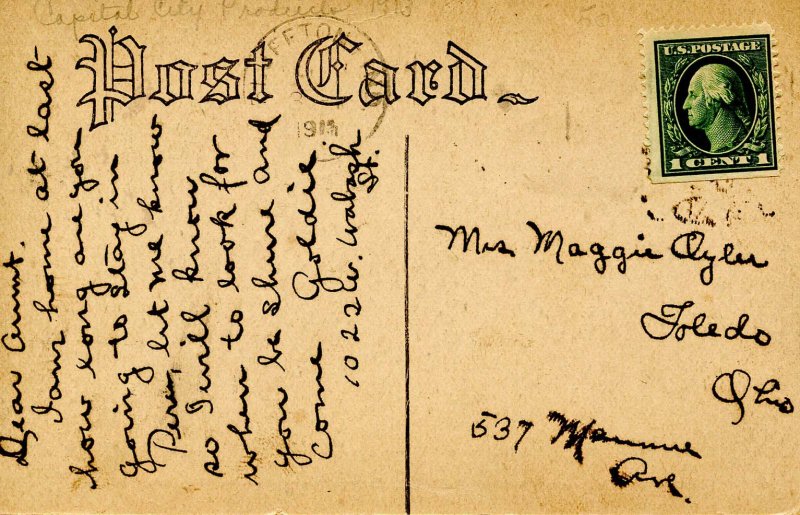 Capital City Products 1913
50
Post Card
FFTO
1911
U.S. POSTAGE
1 CENT 1
Dear Aunt.
I am home at last
how long are you
going to stay in
Peru, let me know
so I will know
when to look for
you be shure and
come Goldie.
1022 W. Wabash
St.
Mrs Maggie Oyler
Toledo
Ohio
537 Maumee
Ave.